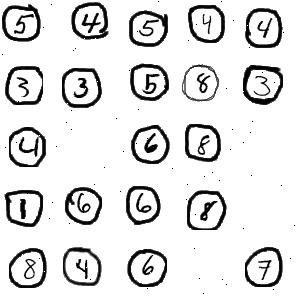 5 4 5 4 4
3 3 5 8 3
4 6 8
1 6 6 8
8 4 6 7